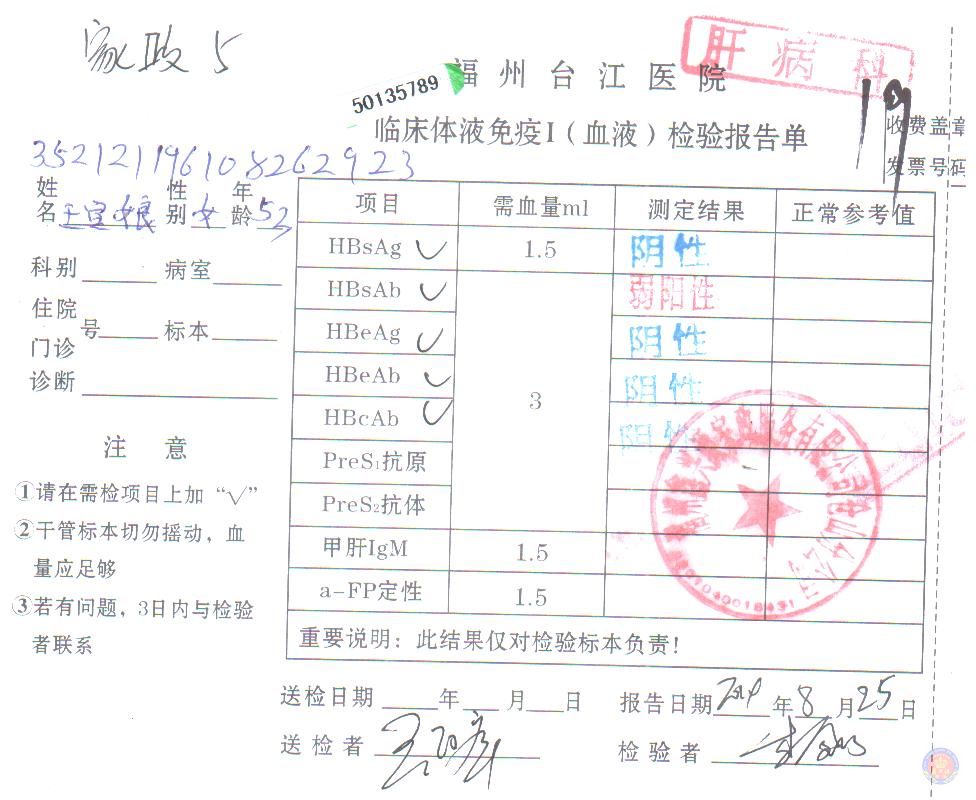 家政 5
肝病科
福州台江医院
50135789
19
临床体液免疫I(血液)检验报告单
收费盖章
发票号码
352121196108262923
姓名 王宝娘 性别 女 年龄 52
科别 病室
住院
门诊 号 标本
诊断
注 意
①请在需检项目上加“√”
②干管标本切勿摇动,血
量应足够
③若有问题,3日内与检验
者联系
项目 需血量ml 测定结果 正常参考值
HBsAg ✓ 1.5 阴性
HBsAb ✓ 弱阳性
HBeAg ✓ 阴性
HBeAb ✓ 3 阴性
HBcAb ✓ 阴性
PreS₁抗原
PreS₂抗体
甲肝IgM 1.5
a-FP定性 1.5
重要说明:此结果仅对检验标本负责!
送检日期 年 月 日 报告日期 2014 年 8 月 25 日
送检者 检验者